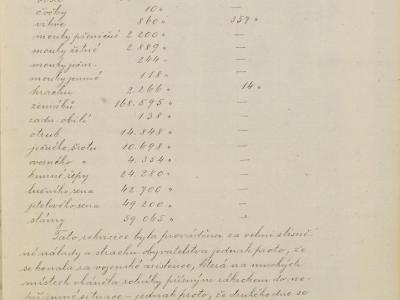 čočky 10 " —
vikve 860 " 359 "
mouky pšeničné 2 200 " —
mouky žitné 2 889 " —
mouky ječm. 244 " —
mouky jemné 118 " —
hrachu 2 266 " 14 "
zemáků 168.595 " —
zadn. obilí 138 " —
otrub 14.848 " —
ječného šrotu 10.698 " —
ovesného " 4.354 " —
krmné řepy 24.280 " —
lučního sena 42.700 " —
jetelového sena 49 200 " —
slámy 59.065 " —
Tato rekvisice byla prováděna za velmi stísně-
né nálady a strachu obyvatelstva jednak proto, že
se konala za vojenské asistence, která na mnohých
místech uháněla rolníky přísným zákrokem do ne-
příjemné situace – jednak proto, že druhého se